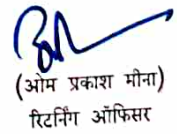 (ओम प्रकाश मीना)
रिटर्निंग ऑफिसर